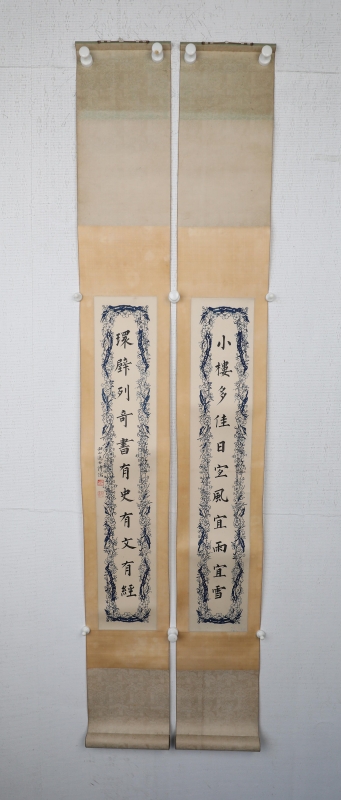 小樓多佳日宜風宜雨宜雪
環壁列奇書有史有文有經